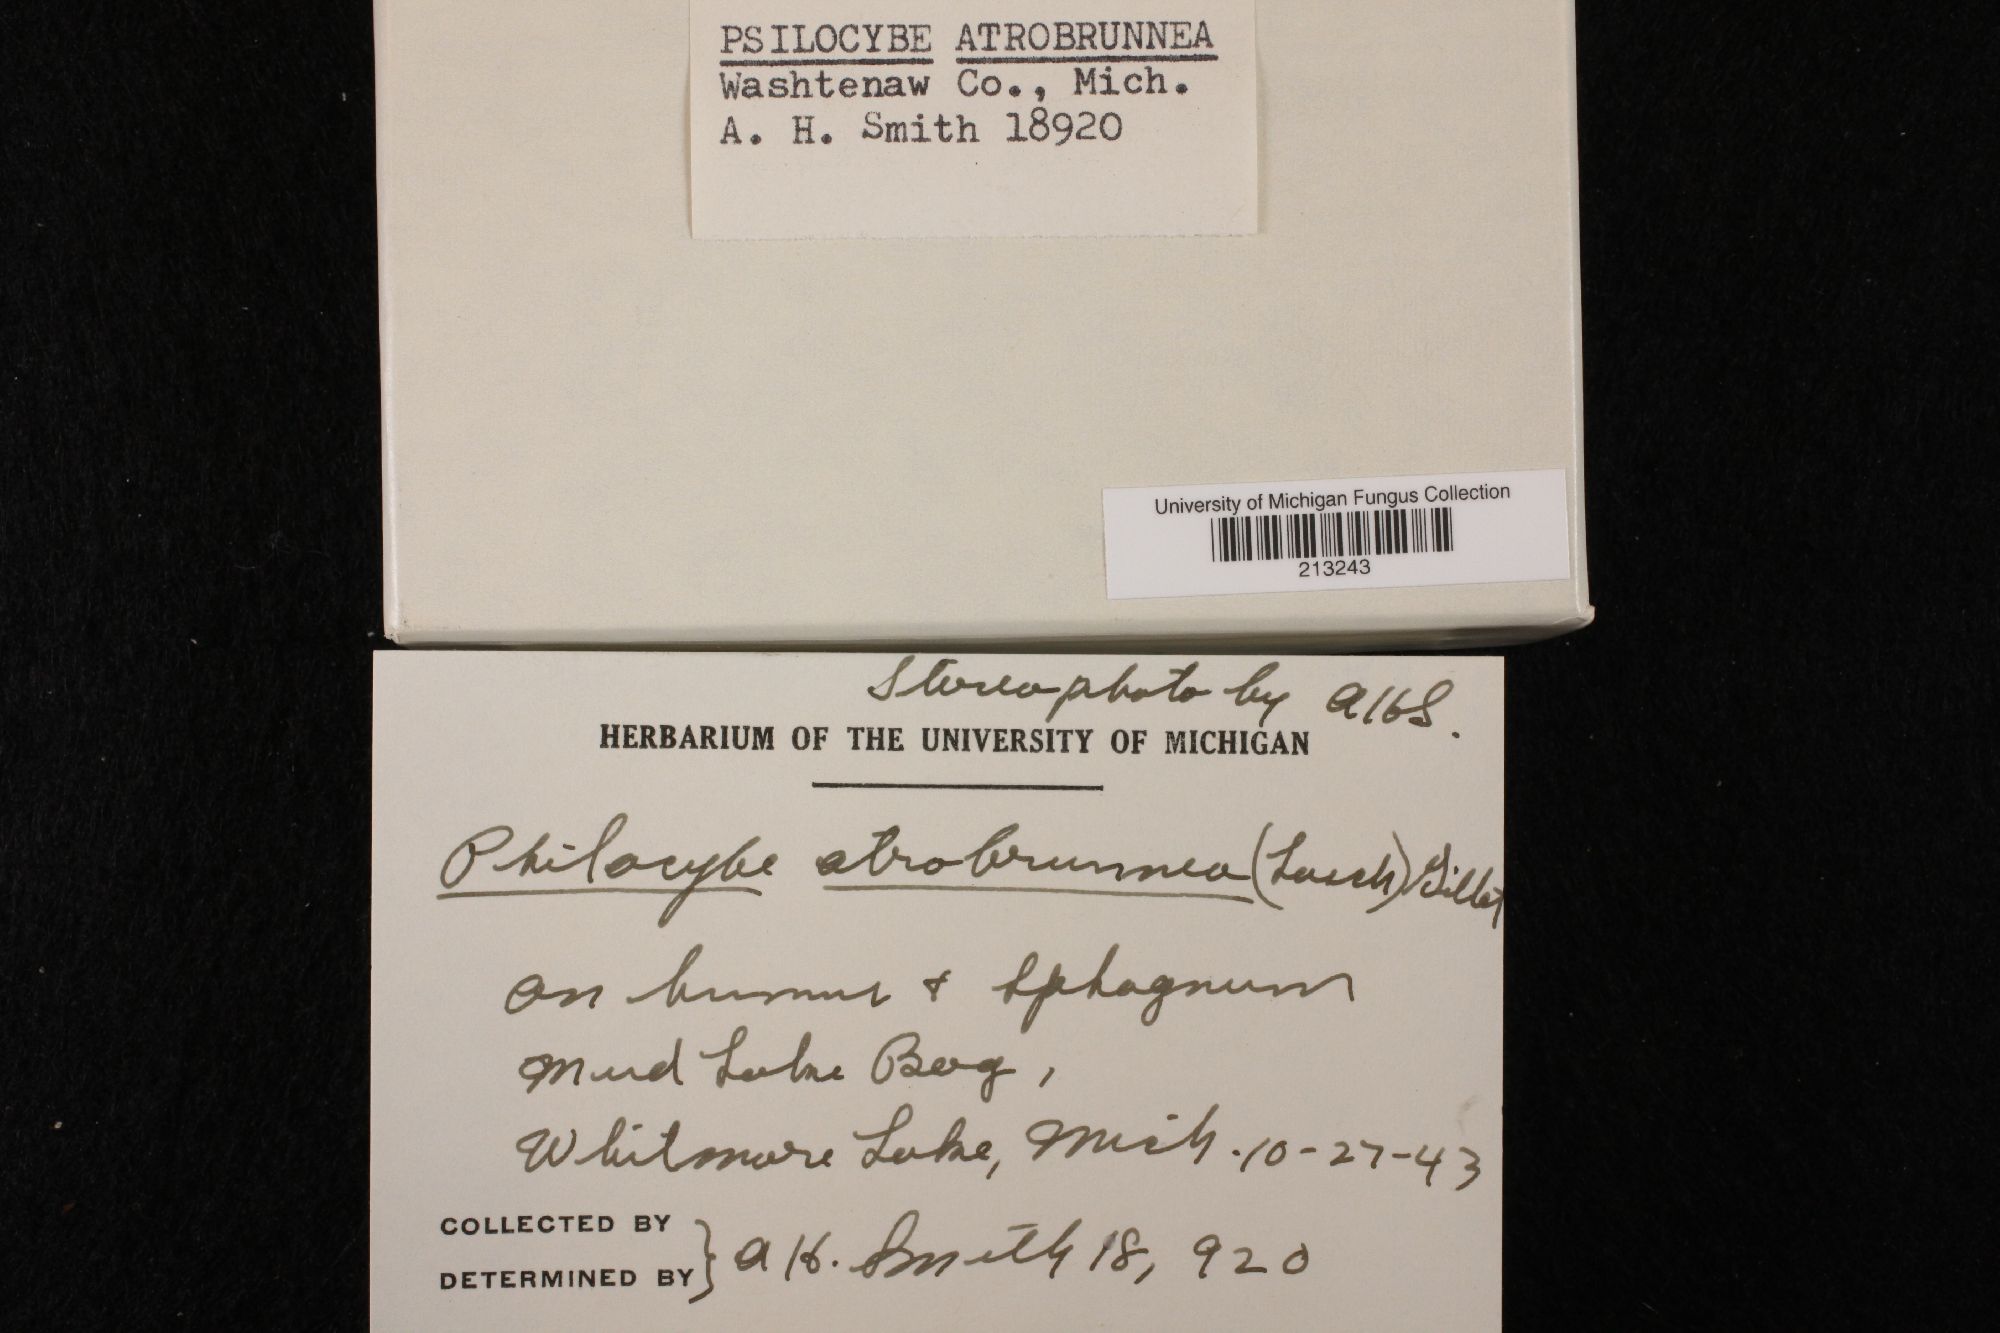 PSILOCYBE ATROBRUNNEA
Washtenaw Co., Mich.
A. H. Smith 18920
University of Michigan Fungus Collection
213243
Stereo photo by AHS.
HERBARIUM OF THE UNIVERSITY OF MICHIGAN
Psilocybe atrobrunnea (Lasch) Gillet
on humus & sphagnum
Mud Lake Bog,
Whitmore Lake, Mich. 10-27-43
COLLECTED BY
DETERMINED BY } A H. Smith 18,920